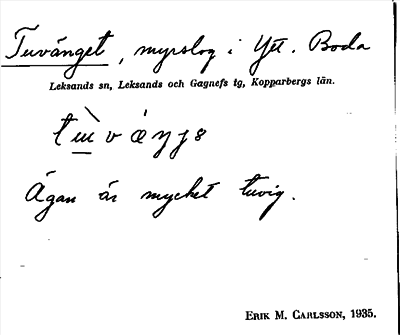 Tuvänget, myrslog i Ytt. Boda
Leksands sn, Leksands och Gagnefs tg, Kopparbergs län.
Ägan är mycket tuvig.
ERIK M. CARLSSON, 1935.